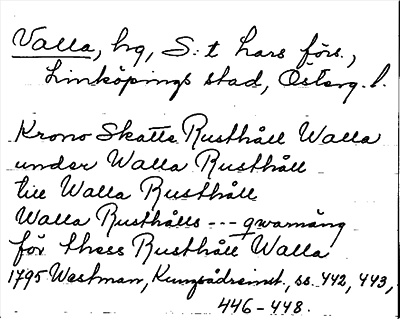 Valla, hg, S:t Lars förs.,
Linköpings stad, Österg. l.
Krono Skatte Rusthåll Walla
under Walla Rusthåll
till Walla Rusthåll
Walla Rusthålls --- qwarnäng
för thess Rusthåll Walla
1795 Westman, ss. 442, 443,
446-448.